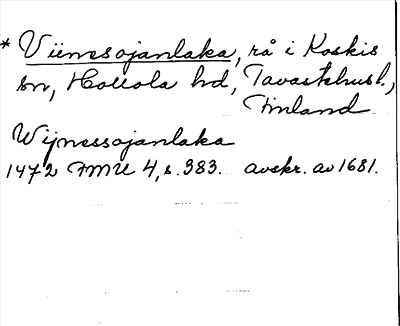 * Viinesojanlaka, rå i Koskis
sn, Hollola hd, Tavastehusl.,
Finland
Wijnessojanlaka
1472 FMU 4, s. 383. avskr. av 1681.